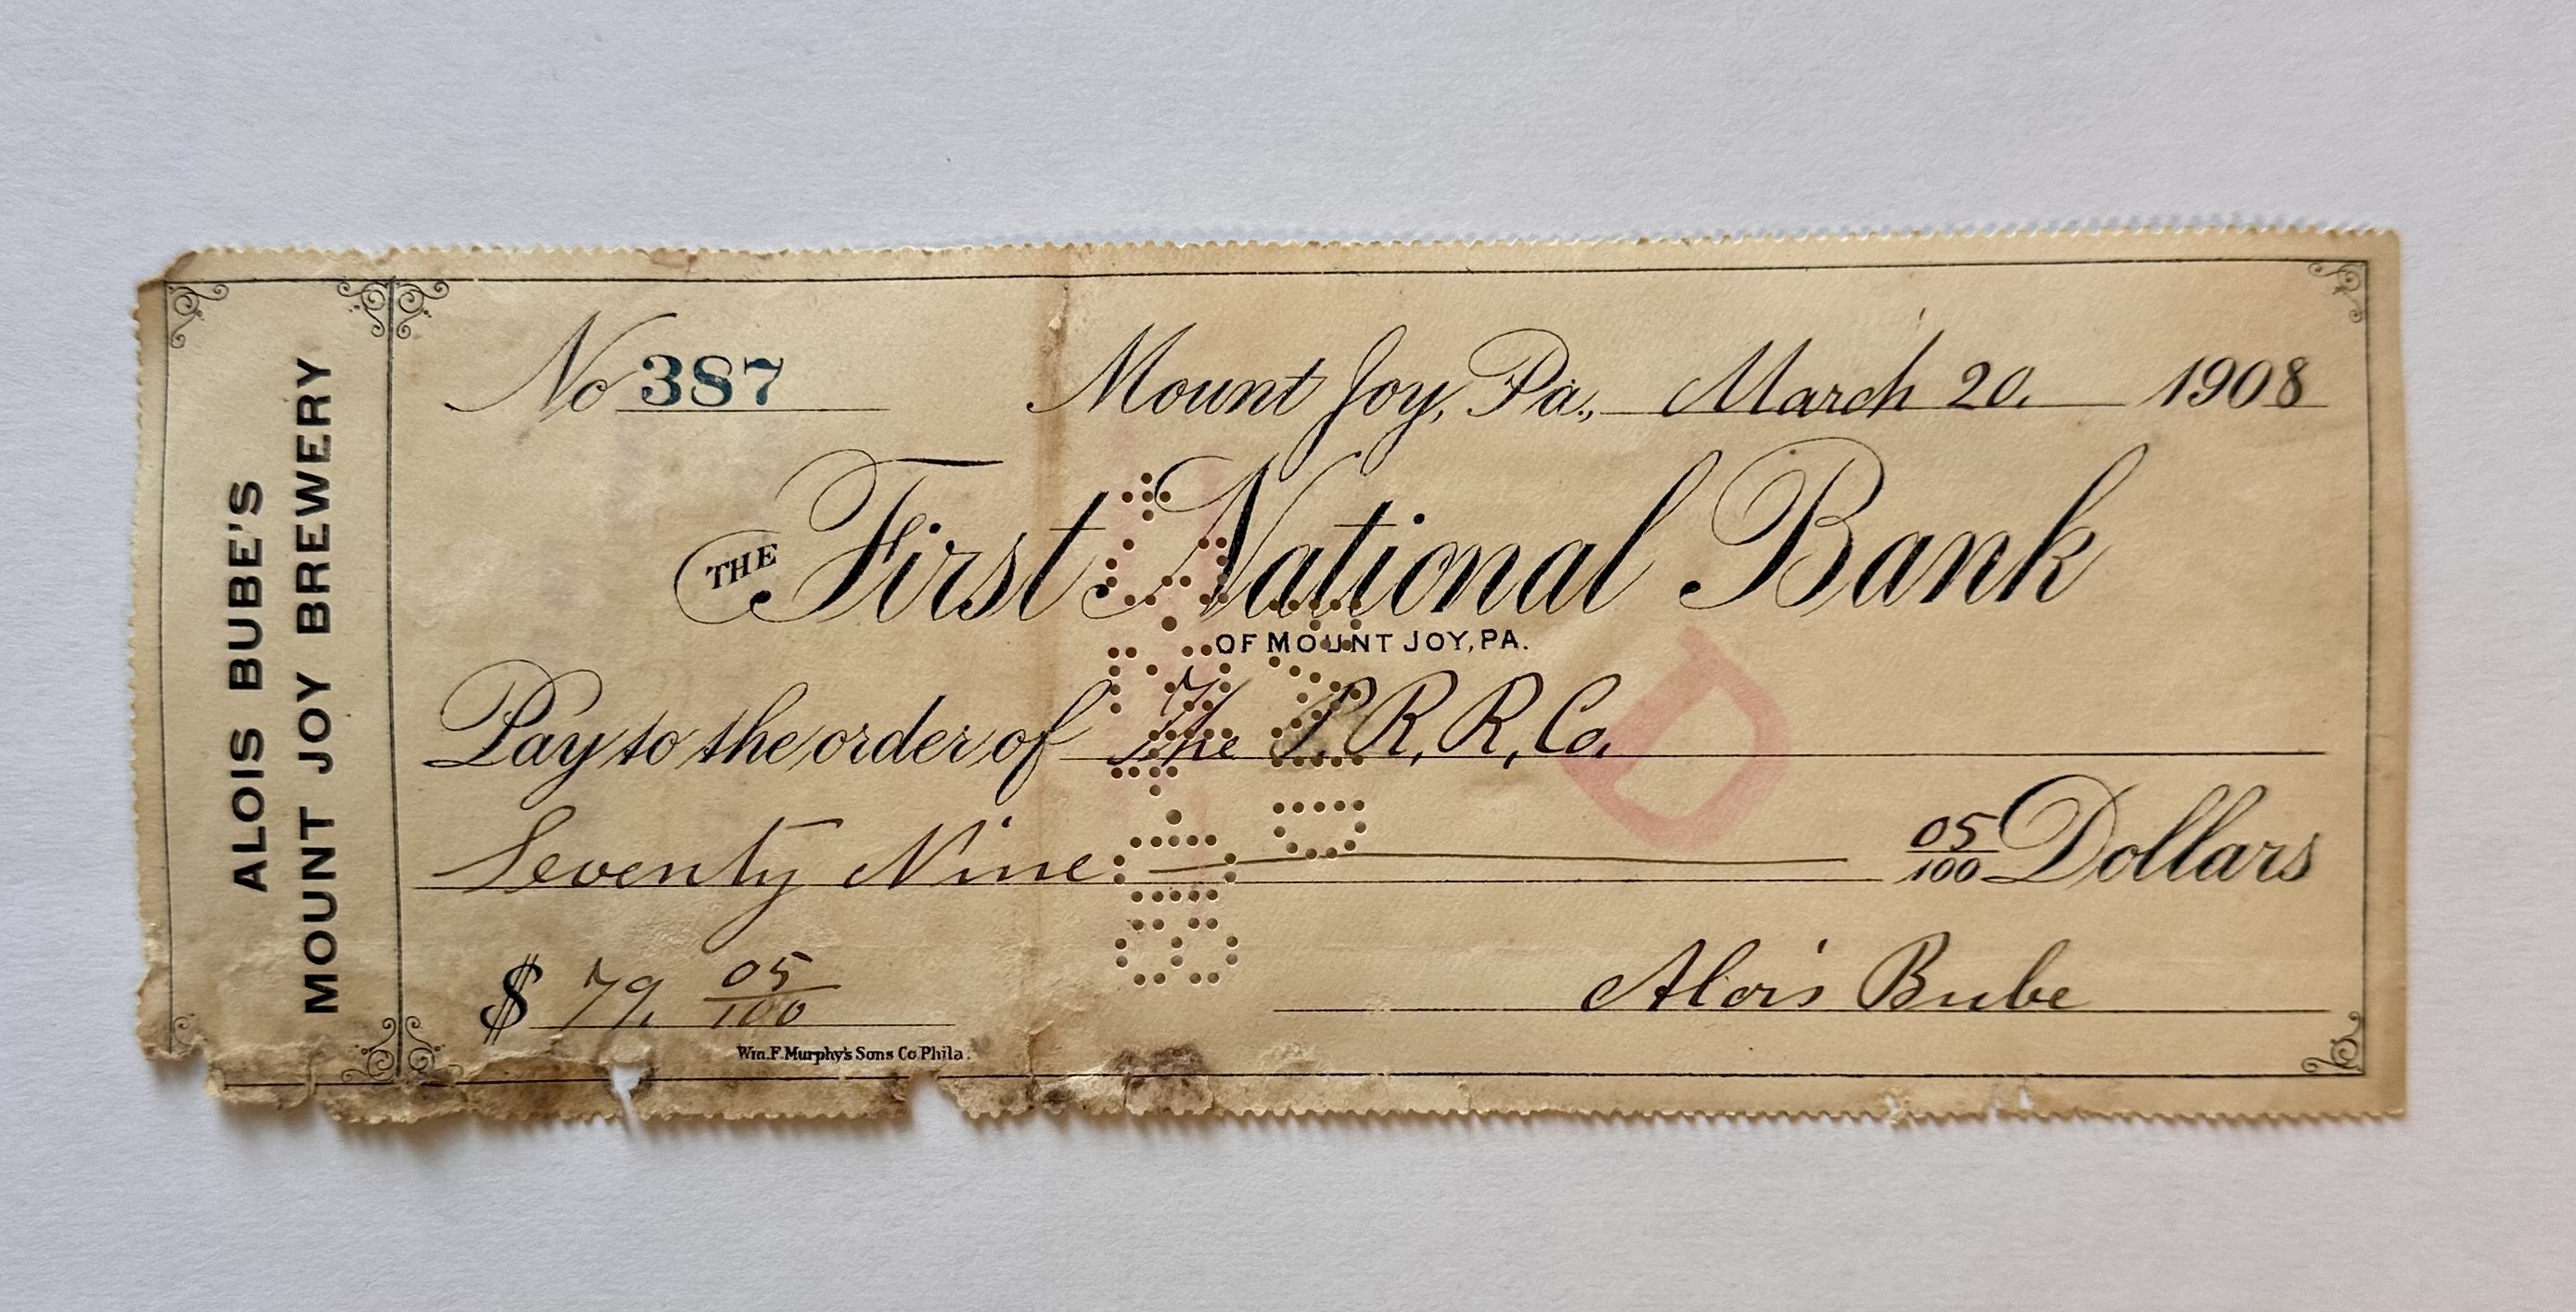 ALOIS BUBE'S
MOUNT JOY BREWERY
No 387
Mount Joy, Pa., March 20, 1908
THE First National Bank
OF MOUNT JOY, PA.
Pay to the order of The P. R. R. Co.
Seventy Nine 05/100 Dollars
$ 79. 05/100
Alois Bube
Wm. F. Murphy's Sons Co Phila.